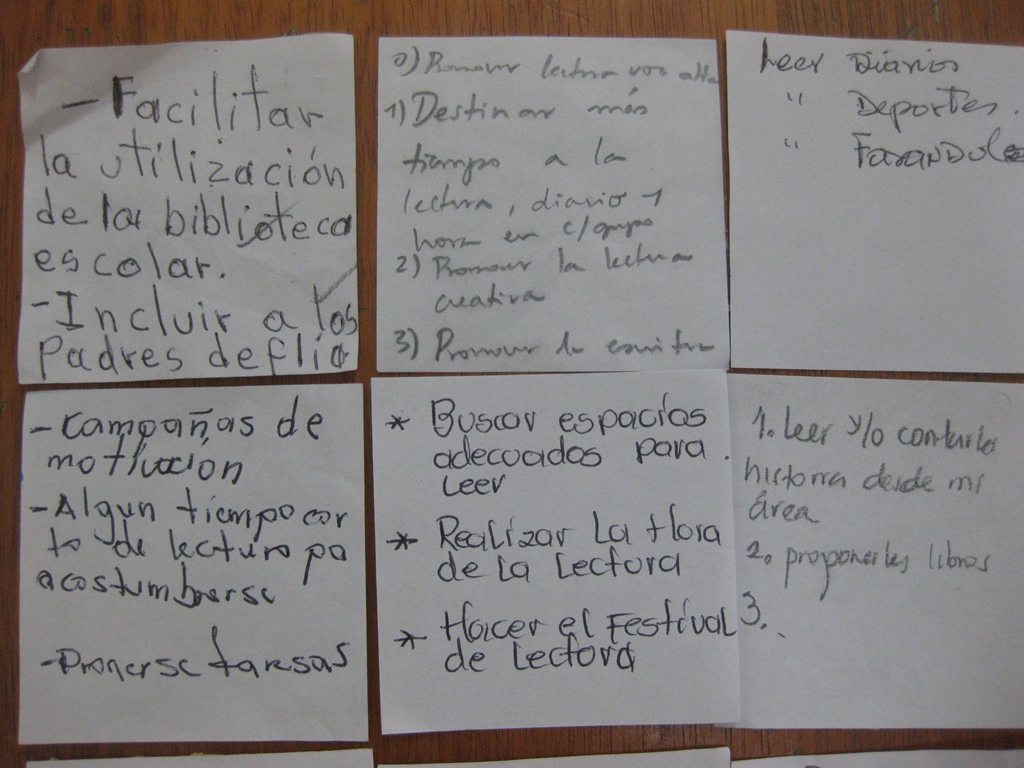 - Facilitar
la utilización
de la biblioteca
escolar.
- Incluir a los
Padres de flia
0) Promover lectura voz alta
1) Destinar más
tiempo a la
lectura, diario 1
hora en c/grupo
2) Promover la lectura
creativa
3) Promover la escritura
Leer Diarios
" Deportes.
" Farandulas
- Campañas de
motivación
- Algun tiempo cor
to de lectura pa
acostumbrarse
- Ponerse tareas
* Buscar espacios
adecuados para
Leer
* Realizar La Hora
de La Lectura
* Hacer el Festival
de Lectura
1. Leer y/o contarles
historia desde mi
área
2. proponerles libros
3.